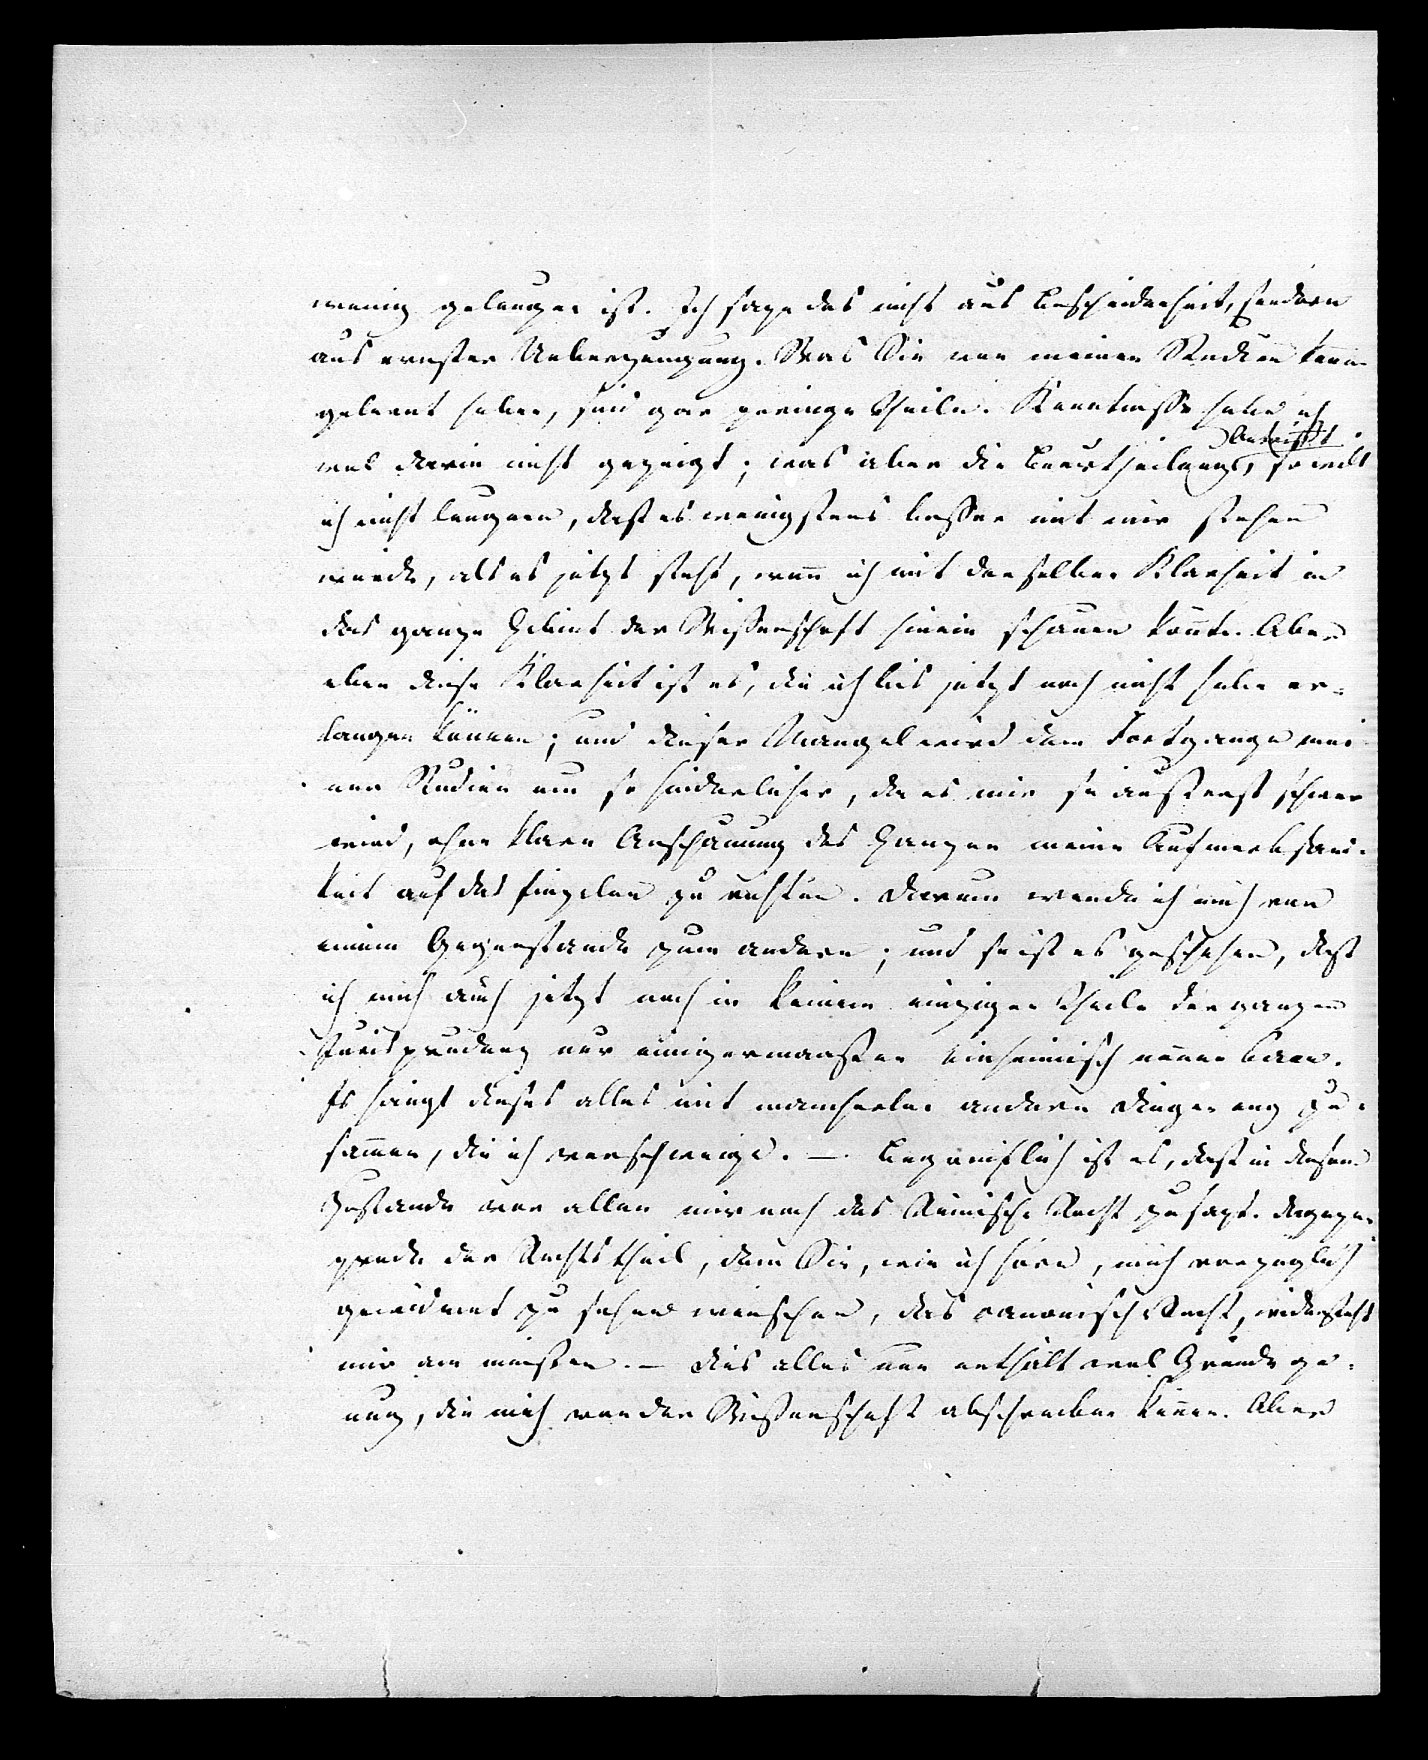 wenig gelungen ist. Ich sage das nicht aus Bescheidenheit, sondern
aus ernster Ueberzeugung. Was Sie von meinen Studien kennen
gelernt haben, sind gar geringe Theile. Kenntnisse habe ich
betrifft
wol darin nicht gezeigt; was aber die Beurtheilung, so will
ich nicht leugnen, daß es wenigstens besser mit mir stehen
würde, als es jetzt steht, wenn ich mit derselben Klarheit in
das ganze Gebiet der Wissenschaft hinein schauen könnte. Aber
eben diese Klarheit ist es, die ich bis jetzt noch nicht habe er-
langen können; und dieser Mangel wird dem Fortgange mei-
ner Studien um so hinderlicher, da es mir so äußerst schwer
wird, ohne klare Anschauung des Ganzen meine Aufmerksam-
keit auf das Einzelne zu richten. Darum wende ich mich von
einem Gegenstande zum andern; und so ist es geschehen, daß
ich mich auch jetzt noch in keinem einzigen Theile der ganzen
Jurisprudenz nur einigermaaßen einheimisch nennen kann.
Es hängt dieses alles mit mancherlei andern Dingen eng zu-
sammen, die ich verschweige. — Begreiflich ist es, daß in diesem
Zustande vor allen mir noch das Römische Recht zusagt. Dagegen
gerade der Rechtstheil, dem Sie, wie ich höre, mich vorzüglich
gewidmet zu sehen wünschen, das canonische Recht, widersteht
mir am meisten. — Dies alles nun enthält wol Gründe ge-
nug, die mich von der Wissenschaft abschrecken können. Aber